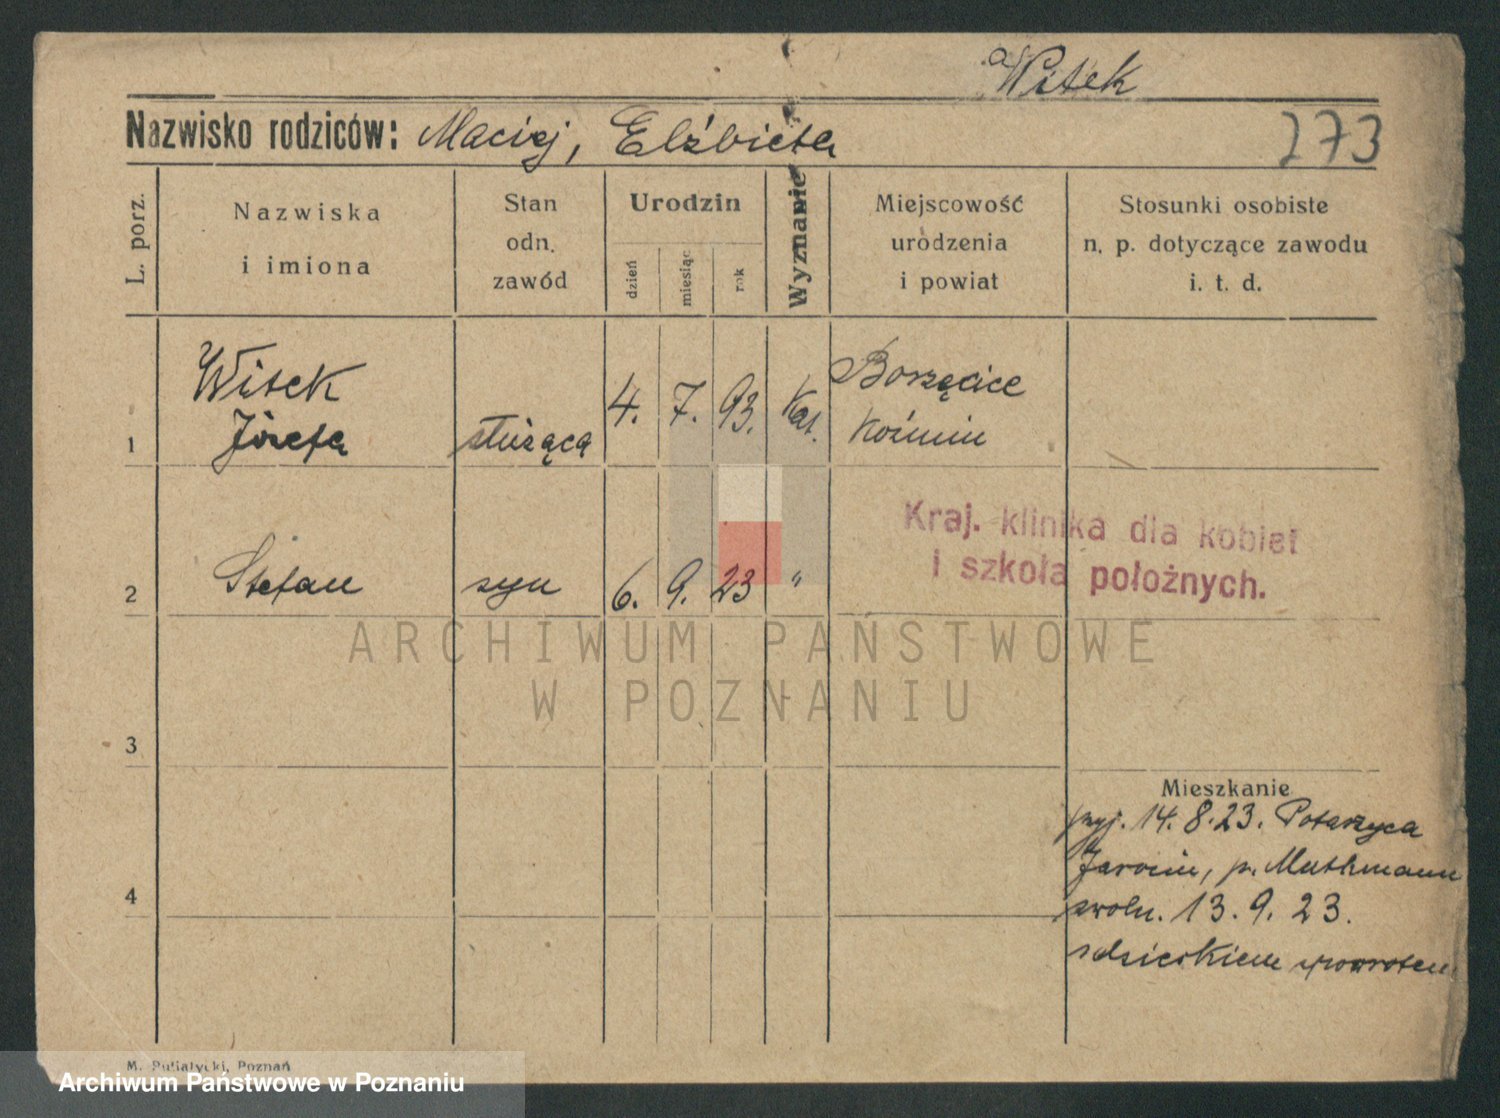 a Witek
Nazwisko rodziców: Maciej, Elżbieta
273
L. porz.
Nazwiska
i imiona
Stan
odn.
zawód
Urodzin
dzień
miesiąc
rok
Wyznanie
Miejscowość
urodzenia
i powiat
Stosunki osobiste
n. p. dotyczące zawodu
i. t. d.
1 Witek
Józefa służąca 4. 7. 93. Kat. Borzęcice
Koźmin
Kraj. klinika dla kobiet
i szkoła położnych.
2 Stefan syn 6. 9. 23 "
ARCHIWUM PAŃSTWOWE
W POZNANIU
3
4
Mieszkanie
przyj. 14. 8. 23. Potarzyca
Jarocin, p. Muthmann
zwoln. 13. 9. 23.
z dzieckiem z powrotem
M. Putiatycki, Poznań
Archiwum Państwowe w Poznaniu